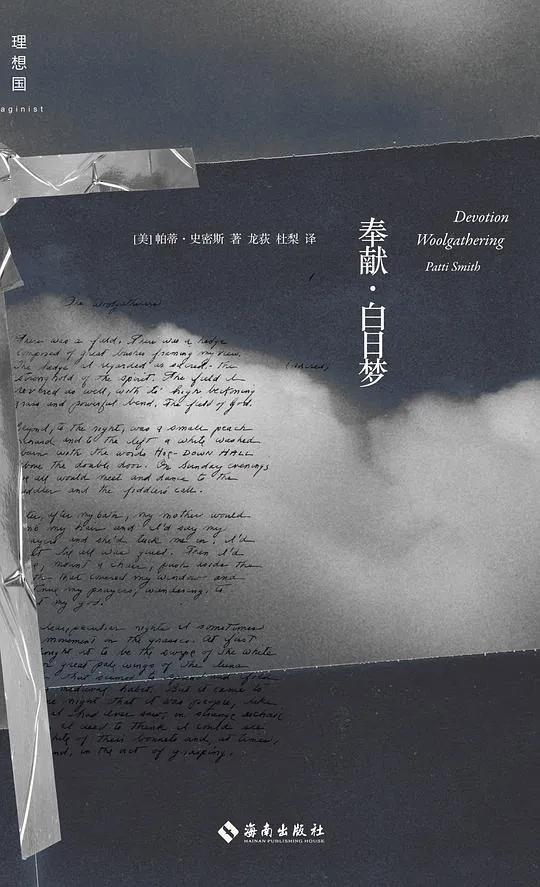 理
想
国
aginist
[美] 帕蒂·史密斯 著 龙荻 杜梨 译
奉献·白日梦
Devotion
Woolgathering
Patti Smith
The woolgatherers
There was a field. There was a hedge
composed of great bushes framing my view.
The hedge I regarded as sacred. the (sacred)
stronghold of the spirit. The field I
revered as well, with its high beckoning
grass and powerful bend, the field of god.
Beyond, to the right, was a small peach
orchard and to the left a white washed
barn with the words HOE-DOWN HALL
above the double door. On Sunday evenings
we all would meet and dance to the
fiddler and the fiddlers call.
after my bath, my mother would
my hair and I'd say my
and she'd tuck me in. I'd
all was quiet. Then I'd
mount a chair, push aside the
that covered my window and
my prayers, wandering, to
my god.
clear, peculiar nights it sometimes
in the grasses. At first
it to be the swipe of the white
great pale wings of the luna
that seemed to
medieval habit. But it came to
night that it was people, like
I had ever saw, in strange
I used to think I could see
of their bonnets and, at times,
in the act of grasping.
海南出版社
HAINAN PUBLISHING HOUSE